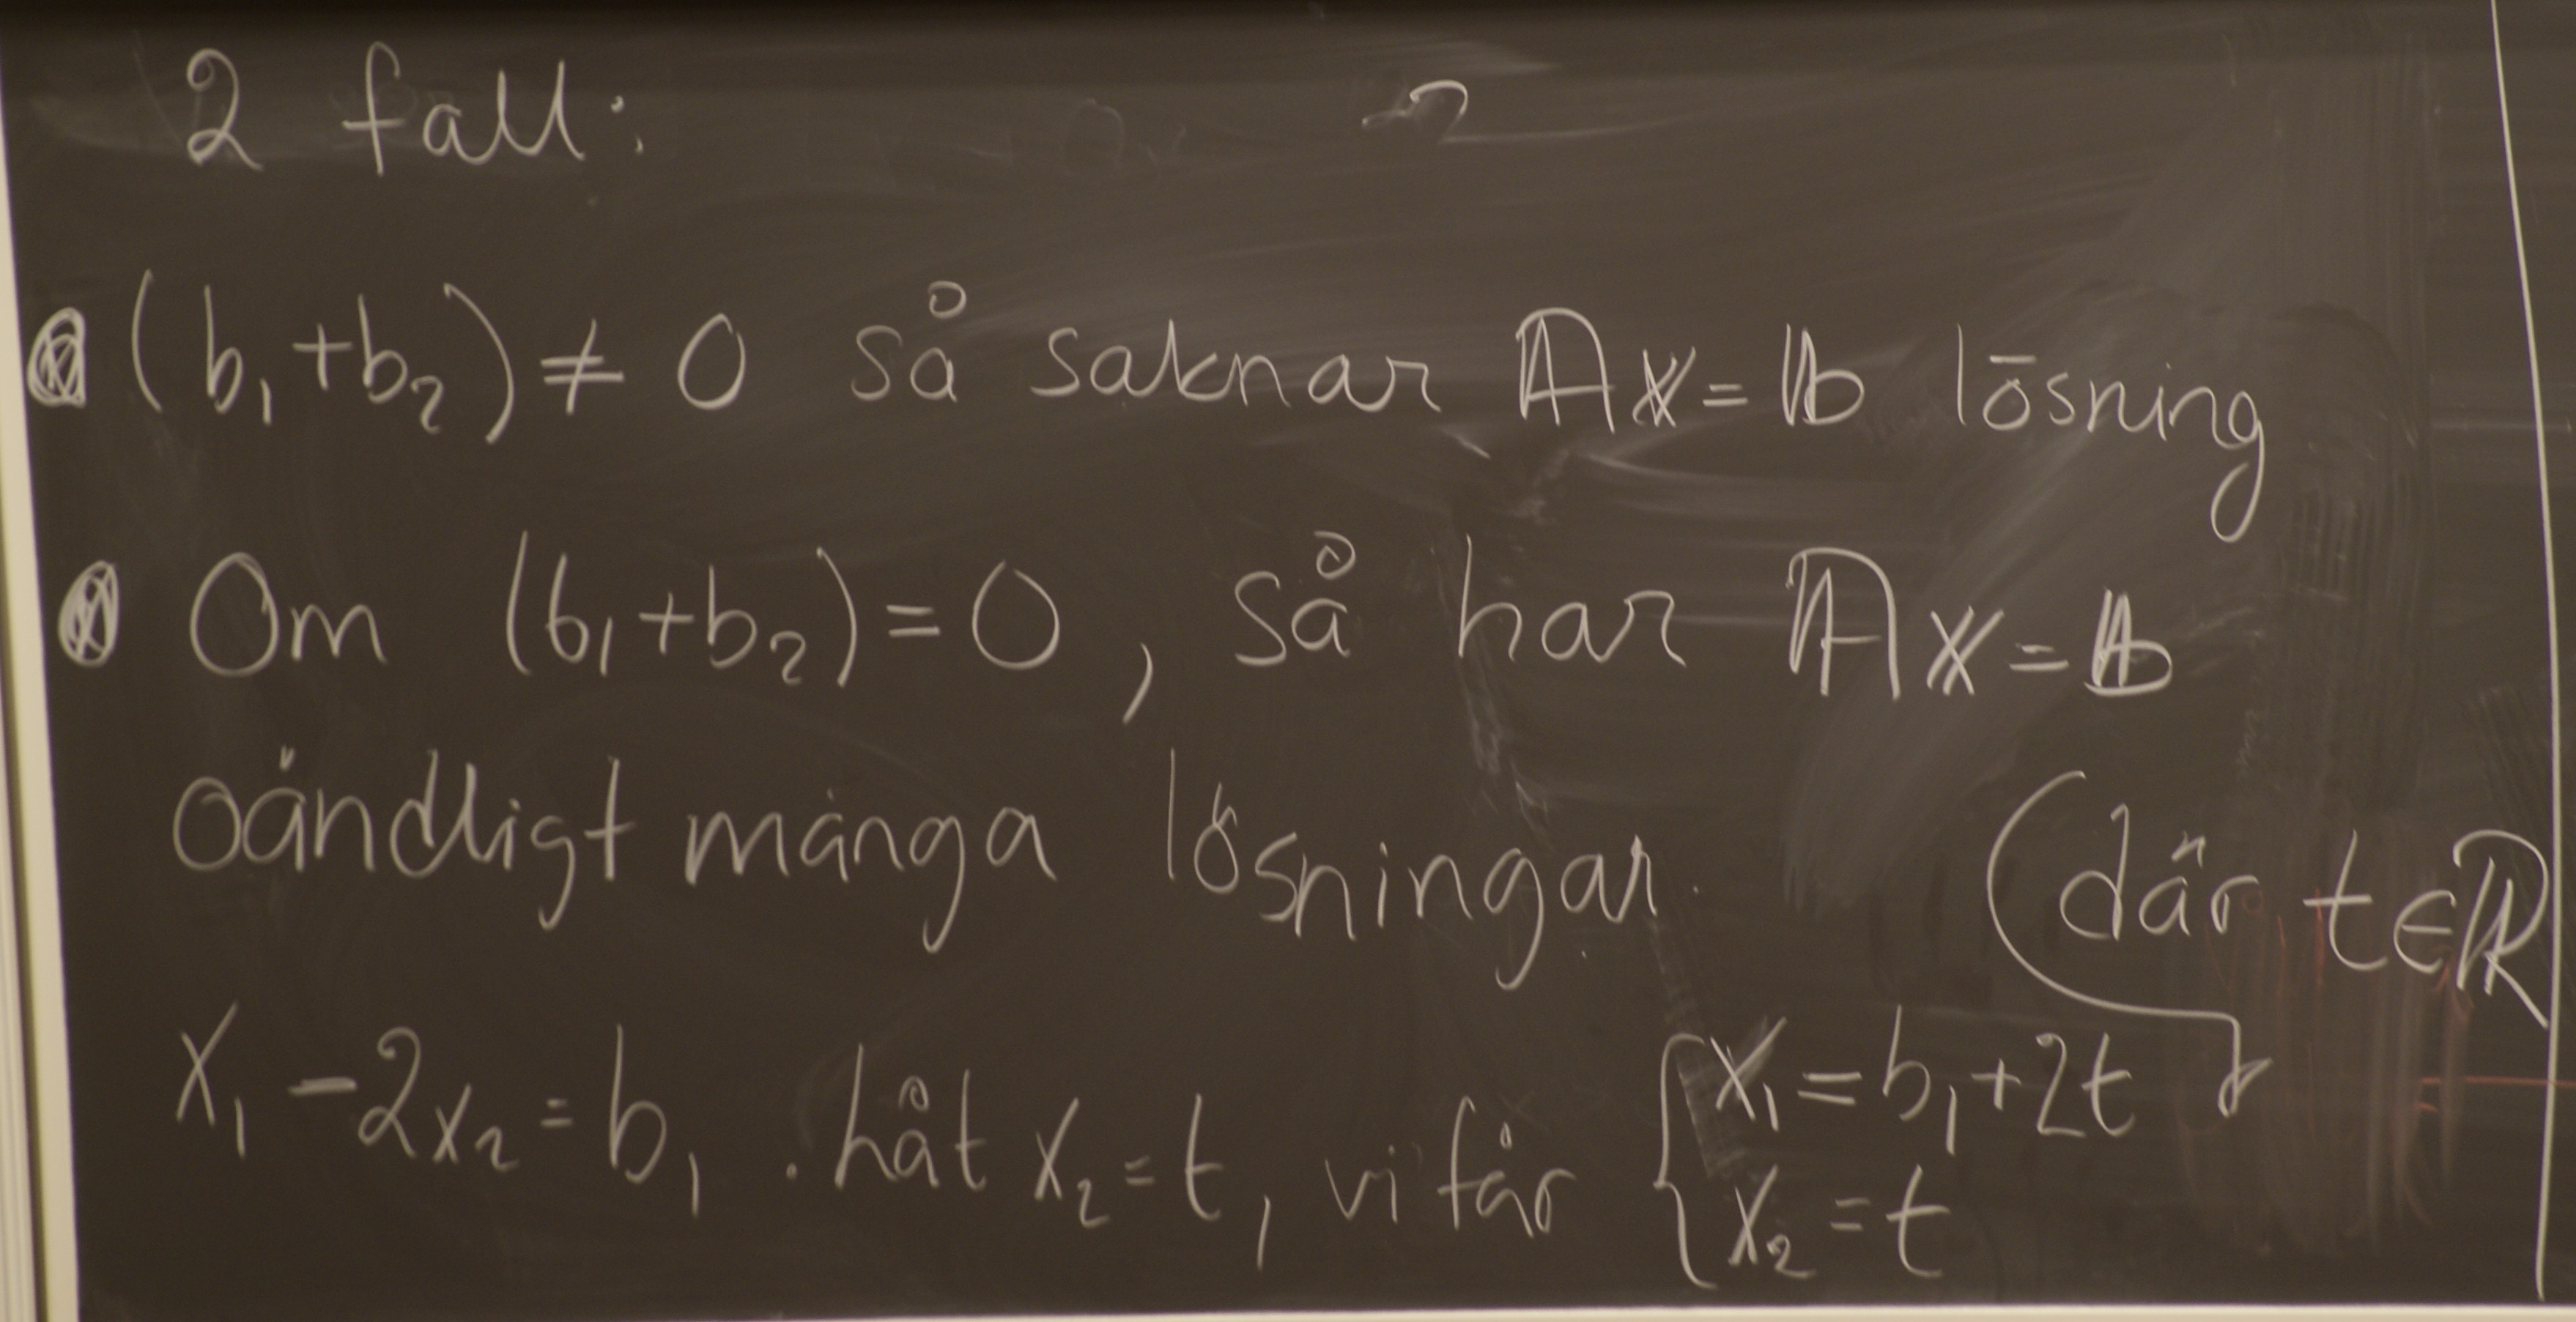 2 fall:
(b₁+b₂) ≠ 0 så saknar Ax = b lösning
Om (b₁+b₂) = 0, så har Ax = b
oändligt många lösningar.
(där t∈ℝ
x₁ - 2x₂ = b₁. låt x₂ = t, vi får { x₁ = b₁ + 2t
x₂ = t